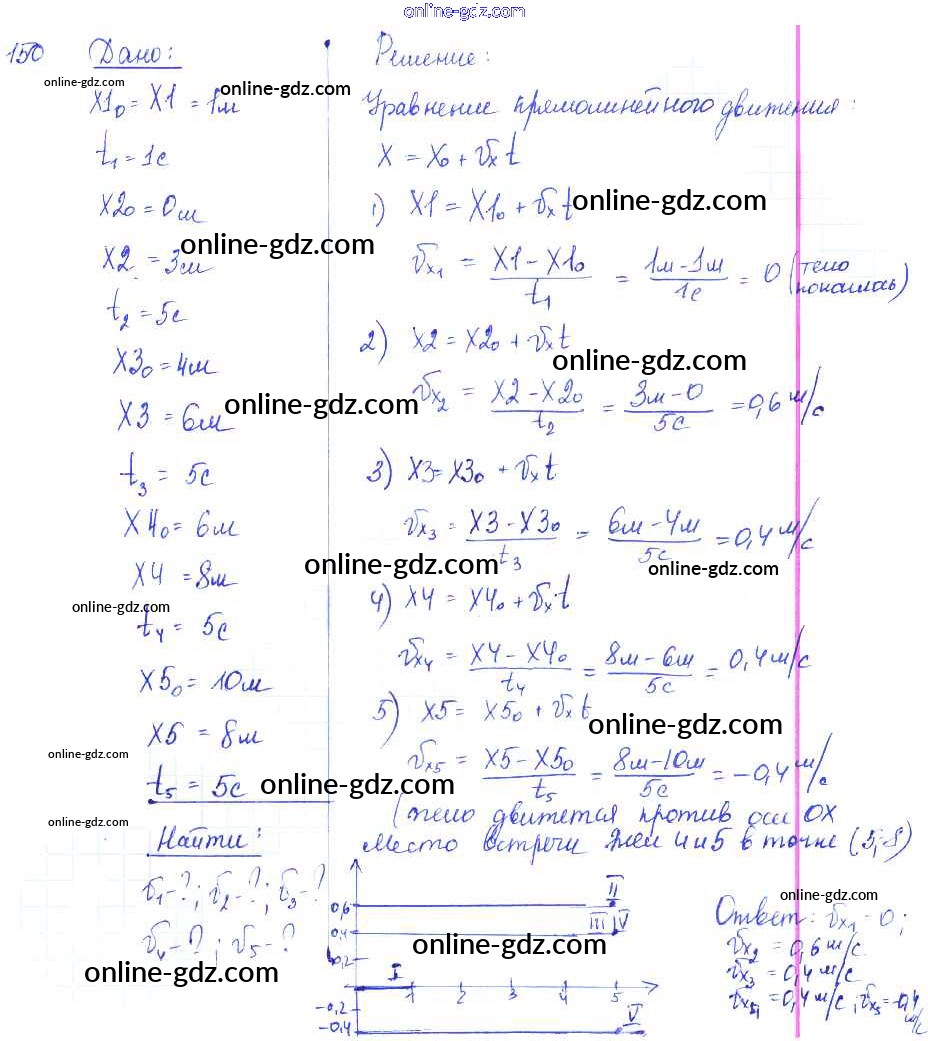 online-gdz.com
150 Дано:
online-gdz.com
X1₀ = X1 = 1м
t₁ = 1с
X2₀ = 0м
online-gdz.com
X2 = 3м
t₂ = 5с
X3₀ = 4м
online-gdz.com
X3 = 6м
t₃ = 5с
X4₀ = 6м
X4 = 8м
online-gdz.com
t₄ = 5с
X5₀ = 10м
X5 = 8м
online-gdz.com
t₅ = 5с
online-gdz.com
online-gdz.com
Найти:
v₁ - ?; v₂ - ?; v₃ - ?
v₄ - ?; v₅ - ?
online-gdz.com
Решение:
online-gdz.com
Уравнение прямолинейного движения:
X = X₀ + vₓt
1) X1 = X1₀ + vₓt
online-gdz.com
vₓ₁ = (X1 - X1₀)/t₁ = (1м - 1м)/1с = 0 (тело
покоилась)
2) X2 = X2₀ + vₓt
online-gdz.com
vₓ₂ = (X2 - X2₀)/t₂ = (3м - 0)/5с = 0,6 м/с
3) X3 = X3₀ + vₓt
vₓ₃ = (X3 - X3₀)/t₃ = (6м - 4м)/5с = 0,4 м/с
online-gdz.com
online-gdz.com
4) X4 = X4₀ + vₓt
vₓ₄ = (X4 - X4₀)/t₄ = (8м - 6м)/5с = 0,4 м/с
5) X5 = X5₀ + vₓt
online-gdz.com
vₓ₅ = (X5 - X5₀)/t₅ = (8м - 10м)/5с = -0,4 м/с
(тело движется против оси OX
место встречи тел 4 и 5 в точке (5; 8)
0,6 II
0,4 III IV
online-gdz.com
0,2
I
1 2 3 4 5
-0,2
-0,4 V
online-gdz.com
Ответ: vₓ₁ = 0;
vₓ₂ = 0,6 м/с
vₓ₃ = 0,4 м/с
vₓ₄ = 0,4 м/с; vₓ₅ = -0,4
м/с